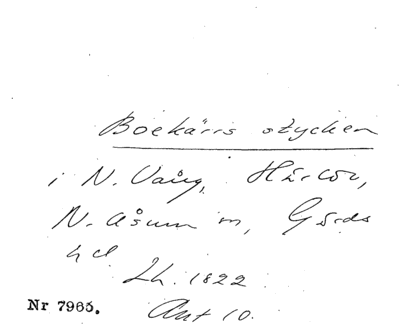 Boekärrs stycken
i N. Vång, Härlöv,
N. Åsum m, Gärds
hd
Lh. 1822.
Nr 7965. Ant 10.